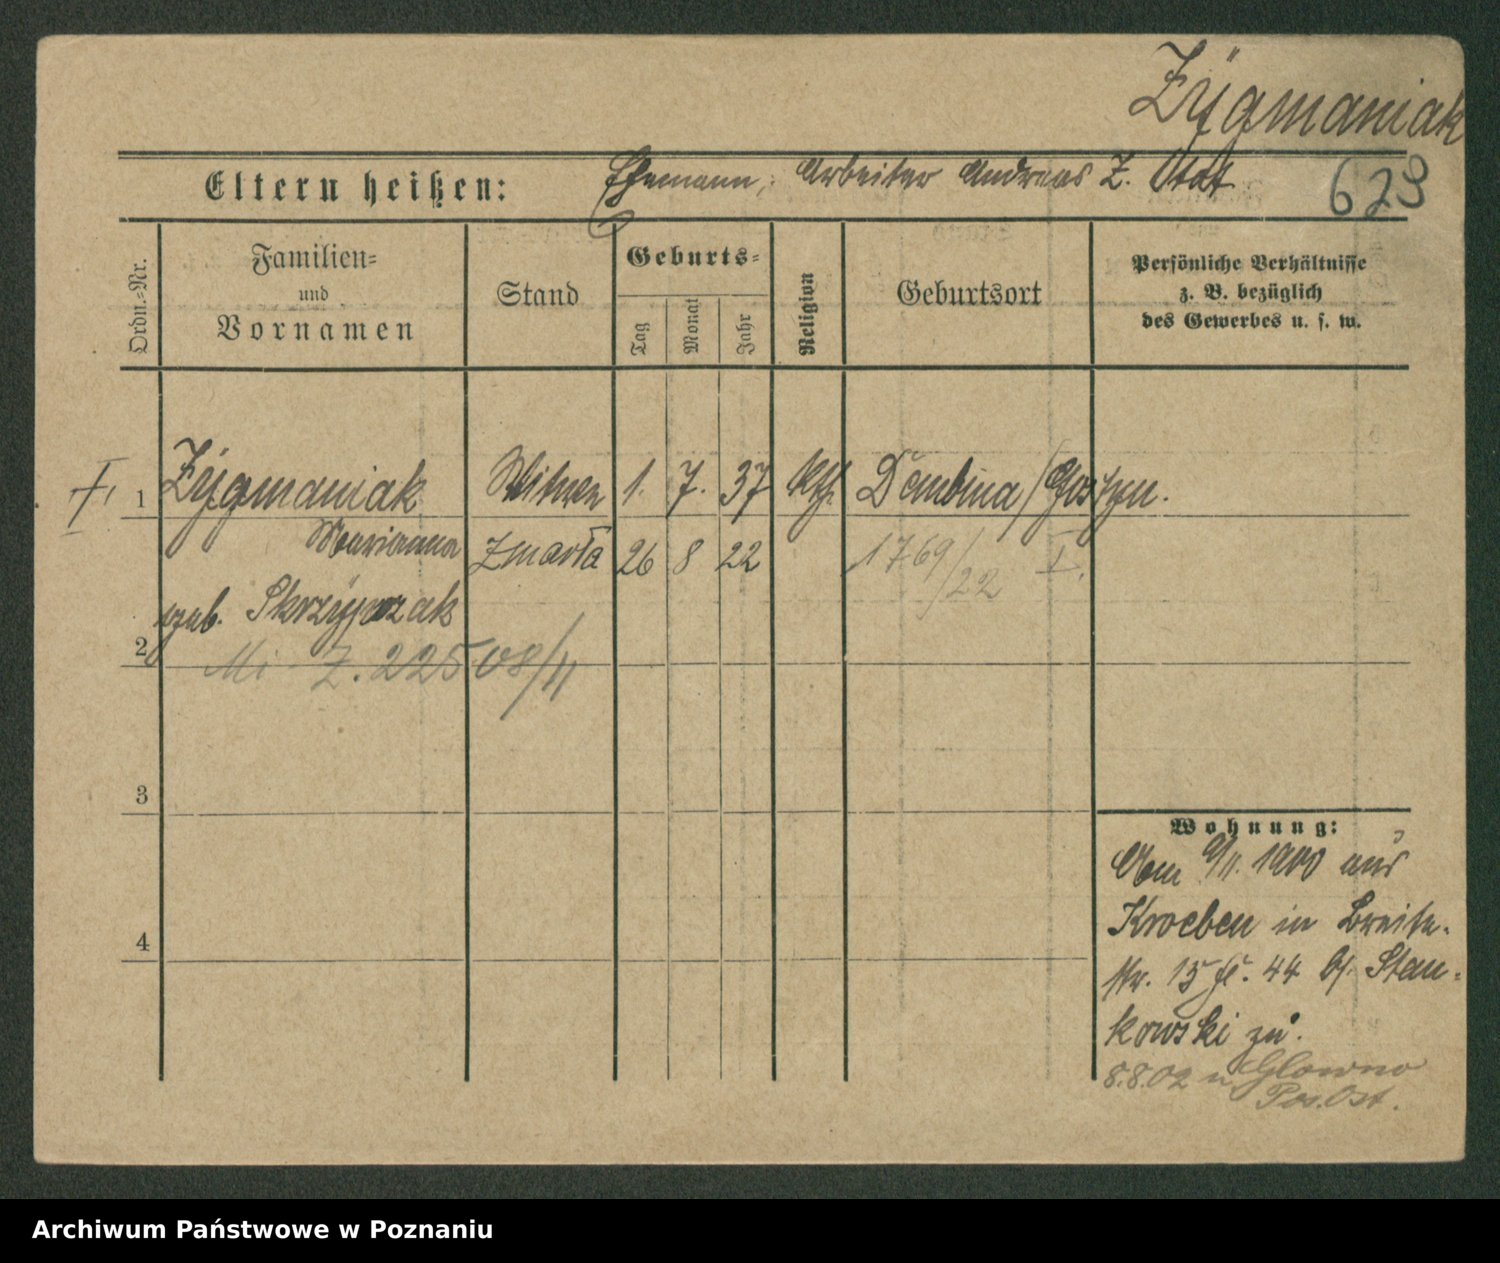 Zÿgmaniak
Eltern heißen: Ehemann, Arbeiter Andreas Z.
629
Ordn.=Nr.
Familien=
und
Vornamen
Stand
Geburts=
Tag
Monat
Jahr
Religion
Geburtsort
Persönliche Verhältnisse
z. B. bezüglich
des Gewerbes u. s. w.
1 Zÿgmaniak Witwe 1. 7. 37 kth. Dembina/Gostyn.
Marianna zmarła 26 8 22 1769/22 I.
geb. Skrzÿpczak
2
Mi Z. 22508/11
3
4
Wohnung:
Am 9/11. 1900 aus
Kroeben in Breite-
str. 15 fl. 44 bj. Stan-
kowski zu.
8.8.02 n Glowno
Pos. Ost.
Archiwum Państwowe w Poznaniu